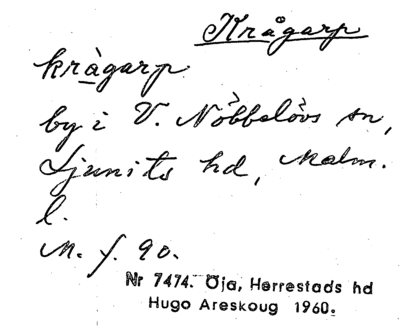 Krågarp
kràgarp
by i V. Nöbbelövs sn,
Ljunits hd, Malm.
l.
M. f. 90.
Nr 7474. Öja, Herrestads hd
Hugo Areskoug 1960.